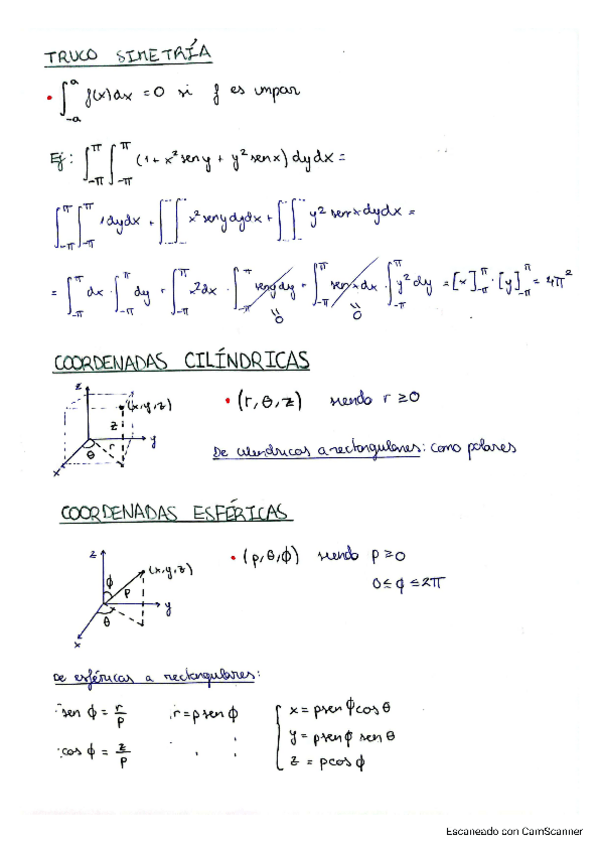 TRUCO SIMETRÍA
• ∫_{-a}^{a} f(x)dx = 0 si f es impar
Ej: ∫_{-π}^{π} ∫_{-π}^{π} (1 + x² sen y + y² sen x) dy dx =
∫_{-π}^{π} ∫_{-π}^{π} 1 dy dx + ∫∫ x² sen y dy dx + ∫∫ y² sen x dy dx =
= ∫_{-π}^{π} dx · ∫_{-π}^{π} dy + ∫_{-π}^{π} x² dx · ∫_{-π}^{π} sen y dy + ∫_{-π}^{π} sen x dx · ∫_{-π}^{π} y² dy = [x]_{-π}^{π} · [y]_{-π}^{π} = 4π²
0 0
COORDENADAS CILÍNDRICAS
z (x,y,z) z y θ r x
• (r, θ, z) siendo r ≥ 0
De cilíndricas a rectangulares: como polares
COORDENADAS ESFÉRICAS
z (x,y,z) ϕ ρ y θ x
• (ρ, θ, ϕ) siendo ρ ≥ 0
0 ≤ ϕ ≤ 2π
De esféricas a rectangulares:
· sen ϕ = r/ρ · r = ρ sen ϕ { x = ρ sen ϕ cos θ
y = ρ sen ϕ sen θ
· cos ϕ = z/ρ z = ρ cos ϕ
Escaneado con CamScanner